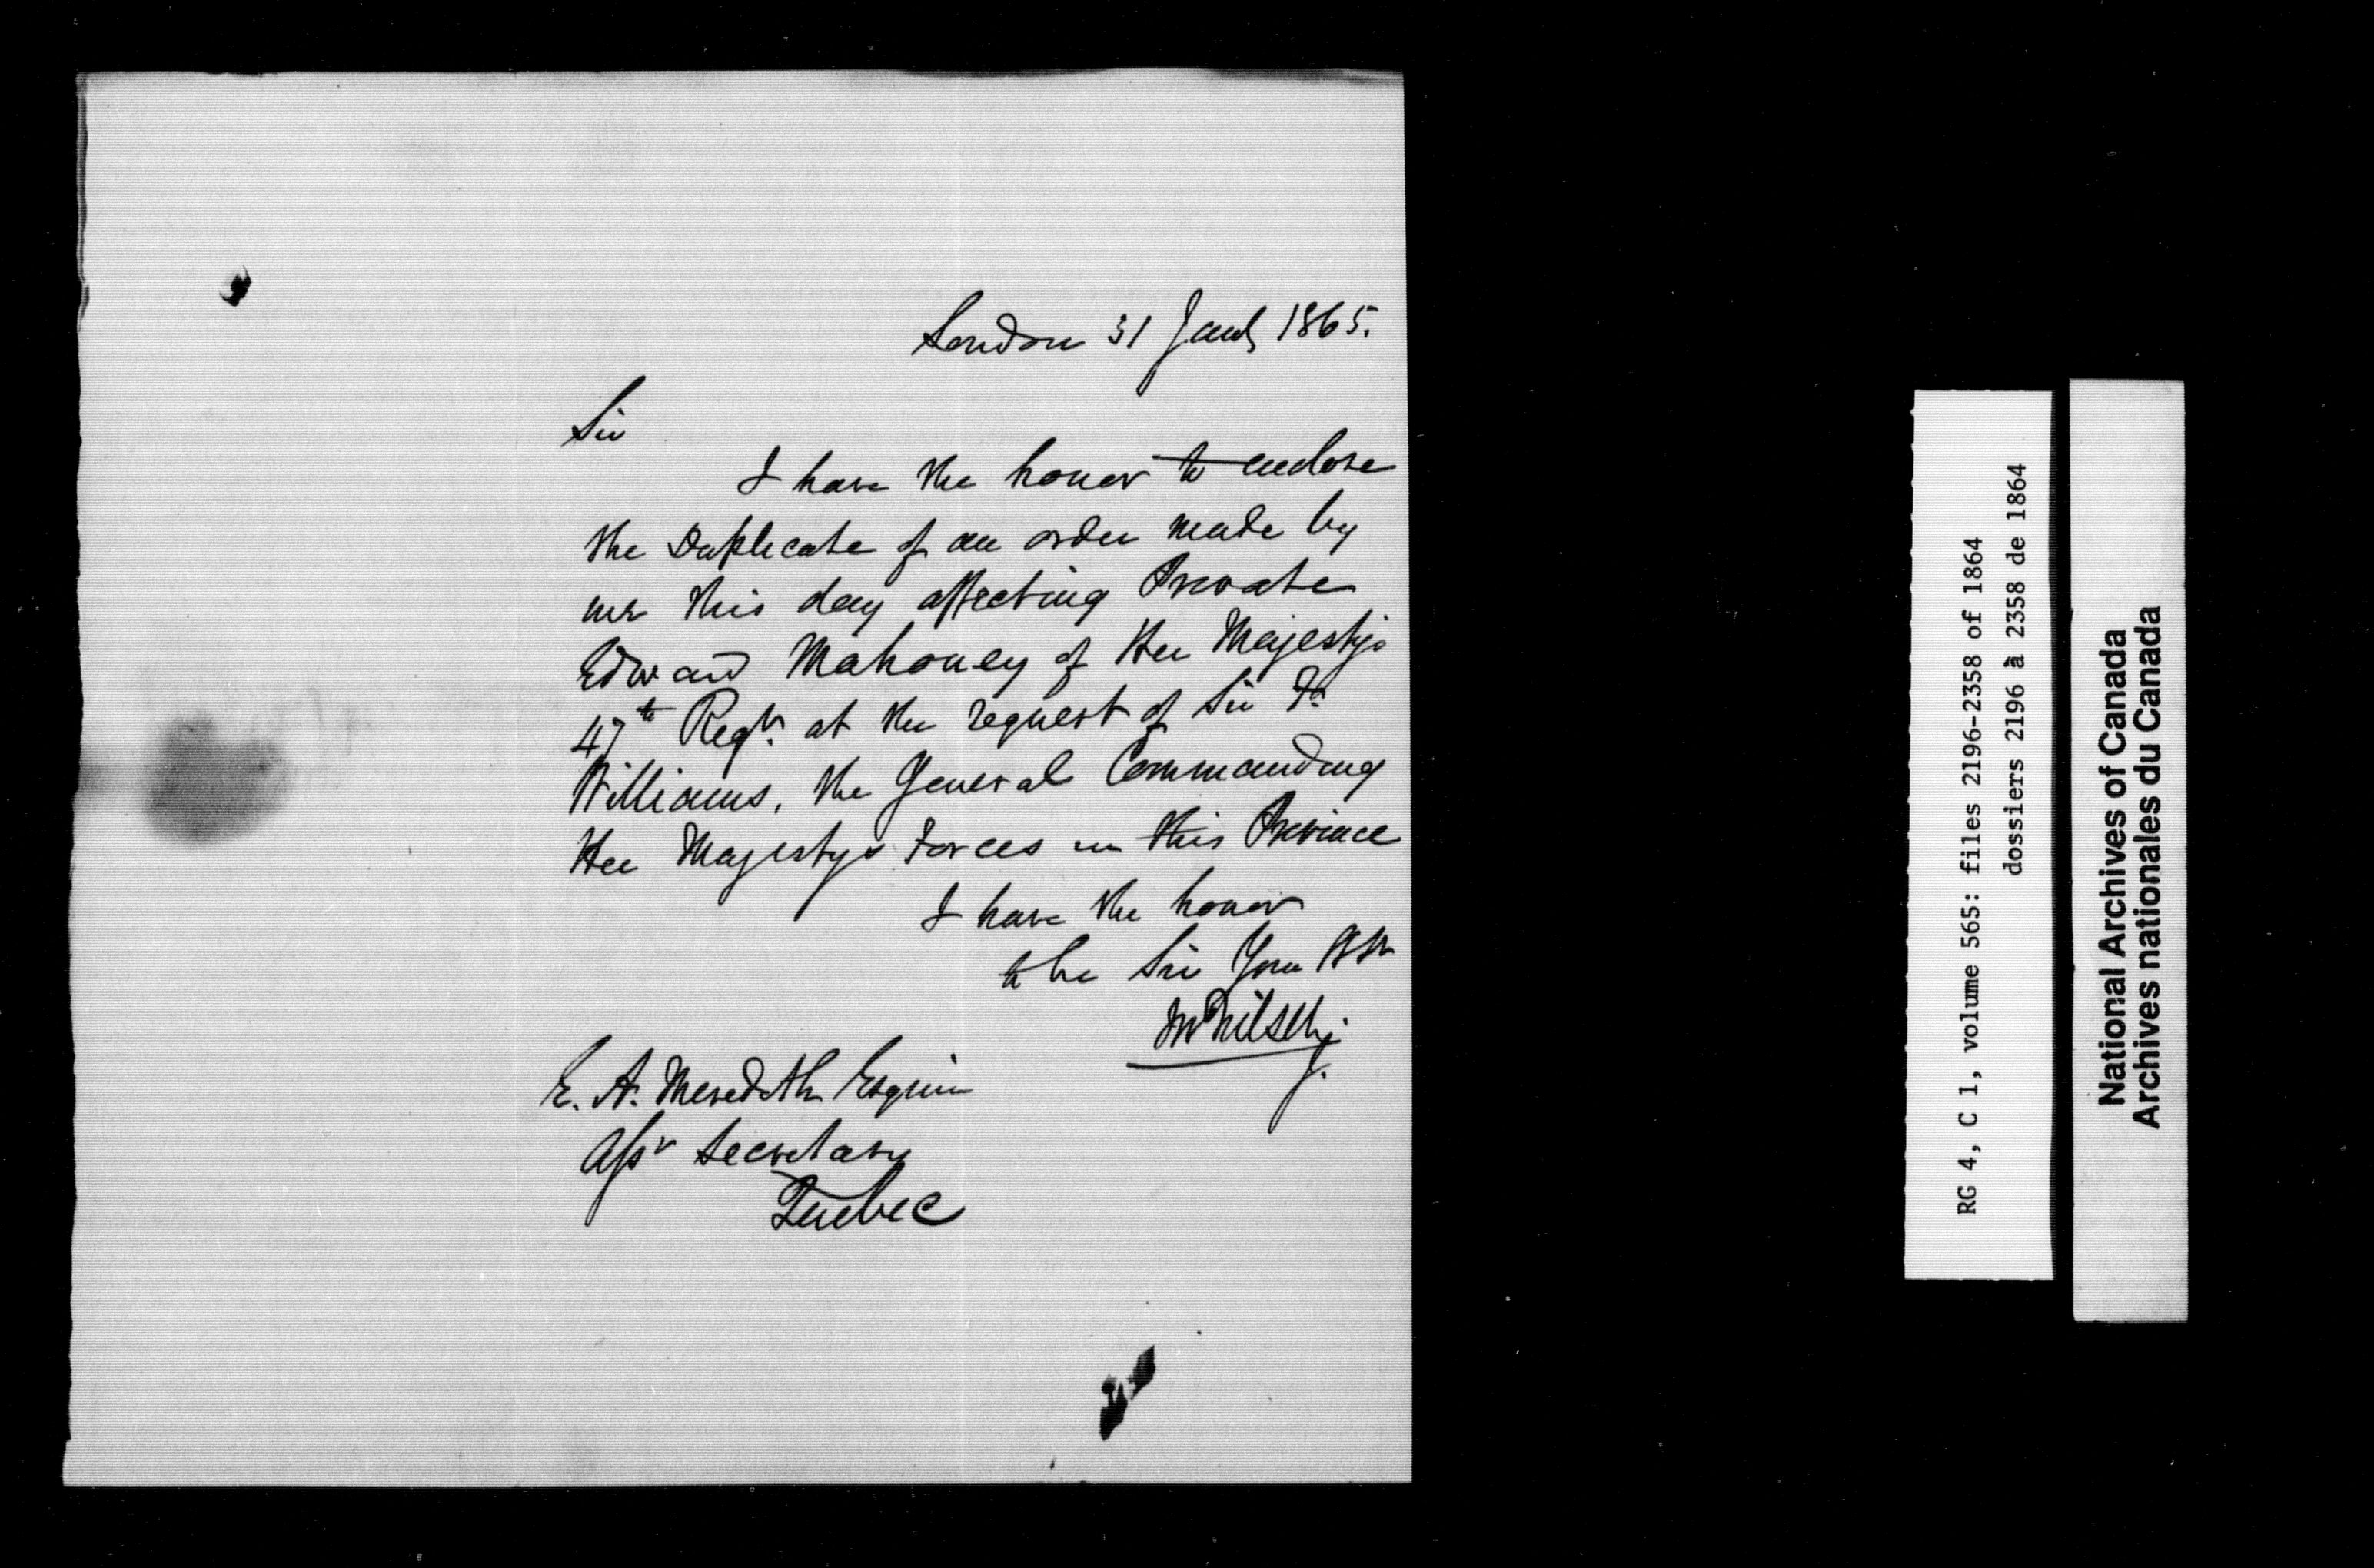 London 31 Jany 1865.
Sir
I have the honor to enclose
the Duplicate of an order made by
me this day affecting Private
Edward Mahoney of Her Majestys
47th Regt. at the request of Sir F.
Williams, the General Commanding
Her Majestys Forces in this Province
I have the honor
to be Sir Your
E. A. Meredith Esquire
Asst Secretary
Quebec
RG 4, C 1, volume 565: files 2196-2358 of 1864
dossiers 2196 à 2358 de 1864
National Archives of Canada
Archives nationales du Canada